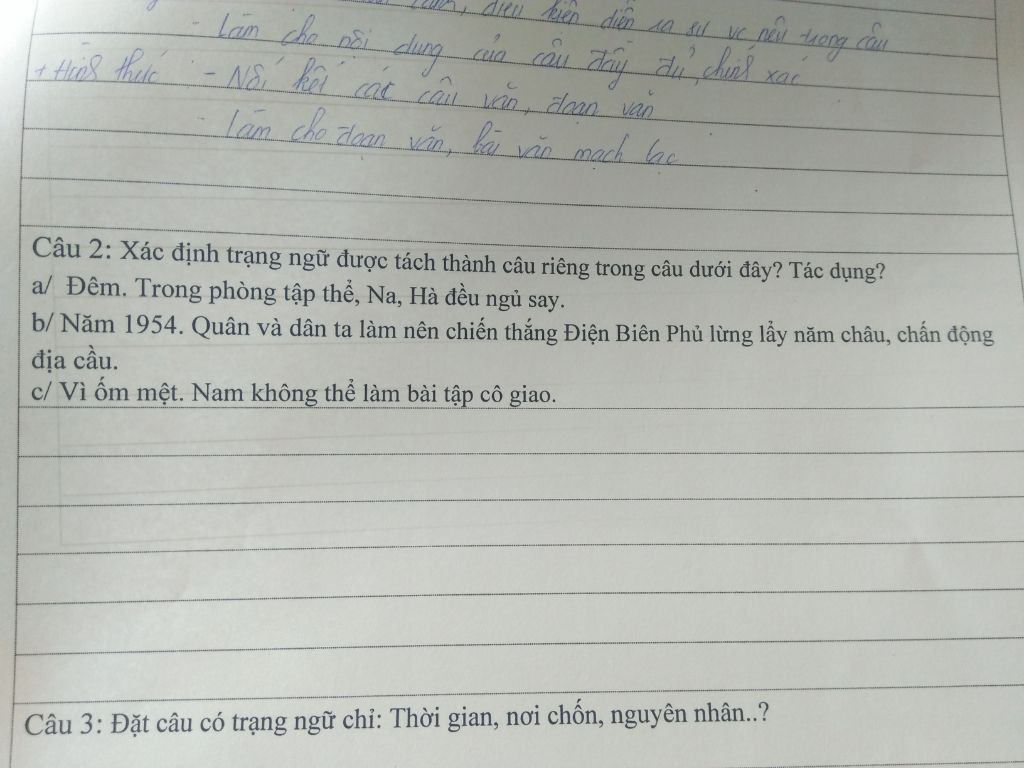 điều kiện diễn ra sự vc nêu trong câu
- Làm cho nội dung của câu đầy đủ, chính xác
+ Hình thức - Nối kết các câu văn, đoạn văn
- Làm cho đoạn văn, bài văn mạch lạc
Câu 2: Xác định trạng ngữ được tách thành câu riêng trong câu dưới đây? Tác dụng?
a/ Đêm. Trong phòng tập thể, Na, Hà đều ngủ say.
b/ Năm 1954. Quân và dân ta làm nên chiến thắng Điện Biên Phủ lừng lẫy năm châu, chấn động
địa cầu.
c/ Vì ốm mệt. Nam không thể làm bài tập cô giao.
Câu 3: Đặt câu có trạng ngữ chỉ: Thời gian, nơi chốn, nguyên nhân..?